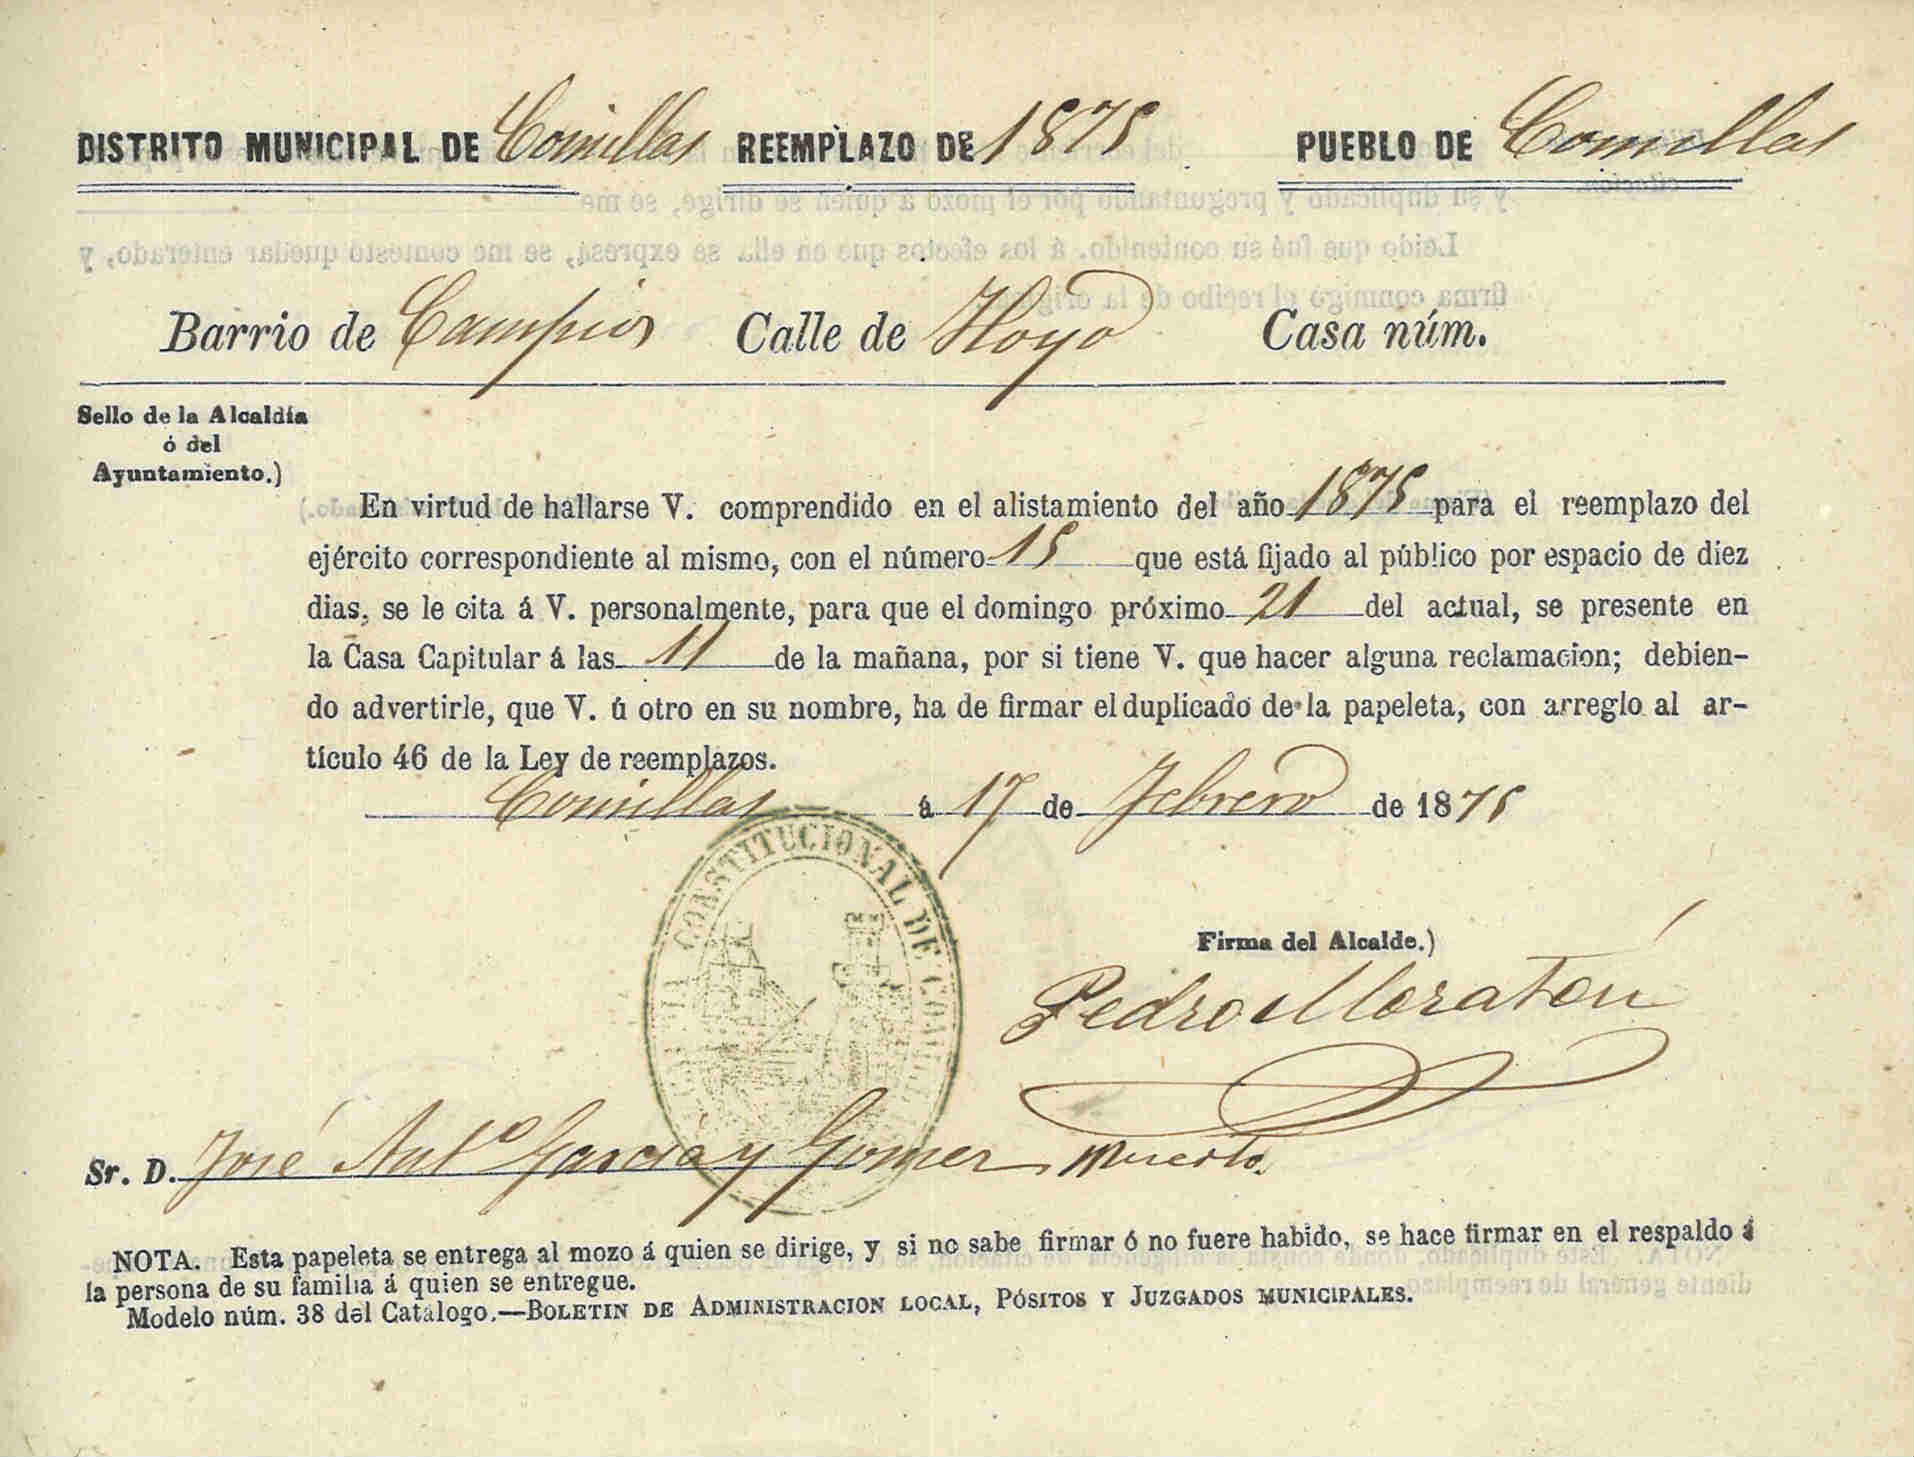 DISTRITO MUNICIPAL DE Comillas REEMPLAZO DE 1875 PUEBLO DE Comillas
Barrio de Campíos Calle de Hoyo Casa núm.
Sello de la Alcaldía
ó del
Ayuntamiento.)
En virtud de hallarse V. comprendido en el alistamiento del año 1875 para el reemplazo del
ejército correspondiente al mismo, con el número 15 que está fijado al público por espacio de diez
dias, se le cita á V. personalmente, para que el domingo próximo 21 del actual, se presente en
la Casa Capitular á las 11 de la mañana, por si tiene V. que hacer alguna reclamacion; debien-
do advertirle, que V. ú otro en su nombre, ha de firmar el duplicado de la papeleta, con arreglo al ar-
tículo 46 de la Ley de reemplazos.
Comillas á 17 de Febrero de 1875
CONSTITUCIONAL DE COMILLAS
Firma del Alcalde.)
Pedro Moratón
Sr. D. José Antº García y Gomez Muerto.
NOTA. Esta papeleta se entrega al mozo á quien se dirige, y si no sabe firmar ó no fuere habido, se hace firmar en el respaldo á
la persona de su familia á quien se entregue.
Modelo núm. 38 del Catálogo.—BOLETIN DE ADMINISTRACION LOCAL, PÓSITOS Y JUZGADOS MUNICIPALES.